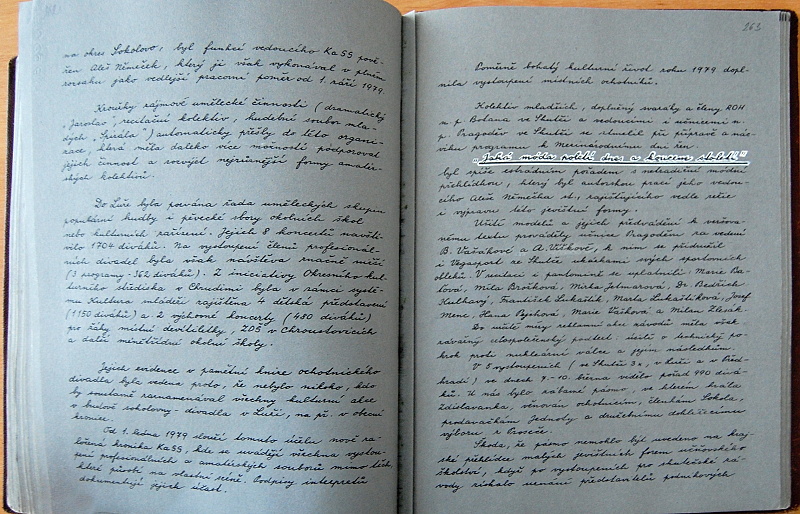 na okres Sokolovo, byl funkcí vedoucího KaSS pově-
řen Aleš Němeček, který je však vykonával v plném
rozsahu jako vedlejší pracovní poměr od 1. září 1979.
Kroužky zájmově umělecké činnosti (dramatický
„Jaroslav", recitační kolektiv, hudební soubor mla-
dých „Spirála") automaticky přešly do této organi-
zace, která měla daleko více možností podporovat
jejich činnost a rozvíjet nejrůznější formy amatér-
ských kolektivů.
Do Luže byla pozvána řada uměleckých skupin
populární hudby i pěvecké sbory okolních škol
nebo kulturních zařízení. Jejich 8 koncertů navští-
vilo 1704 diváků. Na vystoupení členů profesionál-
ních divadel byla však návštěva značně nižší
(3 programy - 362 diváků). Z iniciativy Okresního kul-
turního střediska v Chrudimi byla v rámci systé-
mu Kultura mládeži zajištěna 4 dětská představení
(1150 diváků) a 2 výchovné koncerty (480 diváků)
pro žáky místní devítiletky, ZDŠ v Chroustovicích
a další mínětřídní okolní školy.
Jejich evidence v pamětní knize ochotnického
divadla byla vedena proto, že nebylo nikoho, kdo
by soustavně zaznamenával všechny kulturní akce
v budově sokolovny - divadla v Luži, na př. v obecní
kronice.
Od 1. ledna 1979 slouží tomuto účelu nově za-
ložená kronika KaSS, kde se uvádějí všechna vystou-
pení profesionálních a amatérských souborů mimo těch,
které působí na vlastní scéně. Podpisy interpretů
dokumentují jejich účast.
263
Poměrně bohatý kulturní život roku 1979 dopl-
nila vystoupení místních ochotníků.
Kolektiv mladších, doplněný svazáky a členy ROH
n. p. Botana ve Skutči a vedoucími i učnicemi n.
p. Pragoděv ve Skutči se stmelil při přípravě a nác-
viku programu k Mezinárodnímu dni žen.
„Jaká móda potěší dnes a koncem století"
byl spíše estrádním pořadem s netradiční módní
přehlídkou, který byl autorskou prací jeho vedou-
cího Aleše Němečka st., zajišťujícího vedle režie
i výpravu této jevištní formy.
Ušití modelů a jejich předvádění k veršova-
nému textu prováděly učnice Pragoděvu za vedení
B. Vašákové a A. Vlčkové, k nim se přidružil
i Vzgasport ze Skutče ukázkami svých sportovních
obleků. V recitaci i pantomimě se uplatnili: Marie Ba-
lová, Míla Brožková, Mirka Jetmarová, Dr. Bedřich
Kulhavý, František Lukaštík, Marta Lukaštíková, Josef
Menc, Hana Pychová, Marie Vašková a Milan Zlesák.
Do určité míry reklamní akce závodů měla však
závažný celospolečenský podtext: úsilí o technický po-
krok proti nukleární válce a jejím následkům.
V 5 vystoupeních (ve Skutči 3x, v Luži a v Před-
hradí) ve dnech 7. - 10. března vidělo pořad 990 divá-
ků. U nás bylo zábavné pásmo, ve kterém hrála
Zdislavanka, věnován ochotnicím, členkám Sokola,
prodavačkám Jednoty a družebnímu dohlížecímu
výboru z Proseče.
Škoda, že pásmo nemohlo být uvedeno na kraj-
ské přehlídce malých jevištních forem učňovského
školství, když po vystoupeních pro skutečské zá-
vody získalo uznání představitelů podnikových